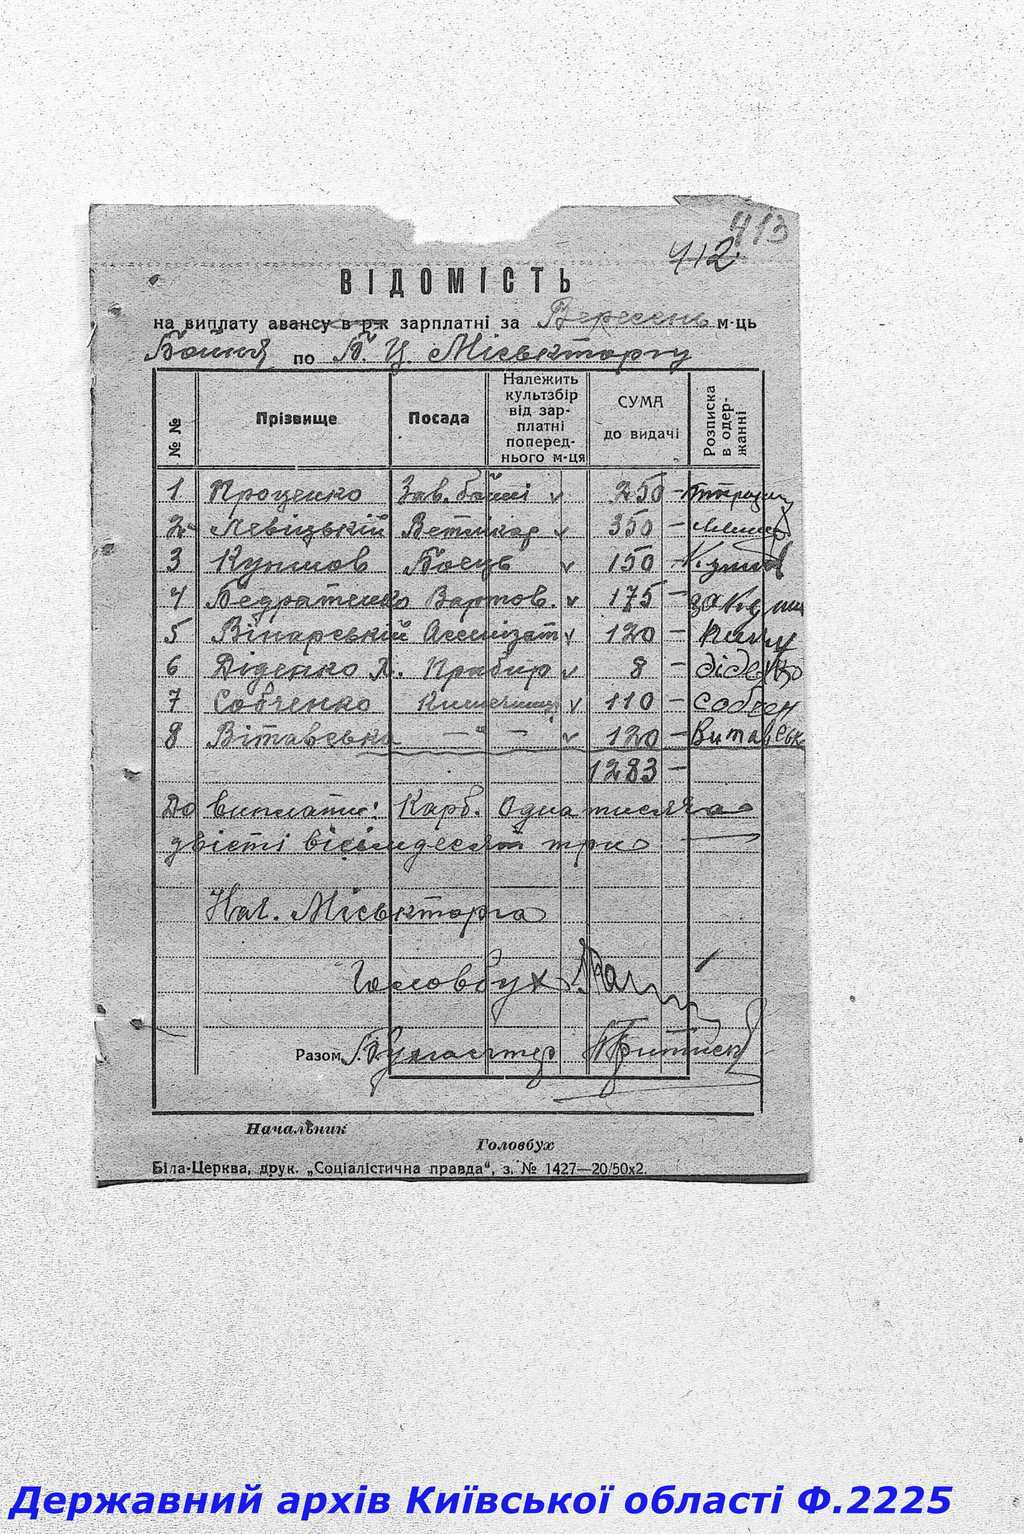 413
412
ВІДОМІСТЬ
на виплату авансу в р-к зарплатні за Вересень м-ць
Бойня по Б. Ц. Міськторгу
№ № Прізвище Посада Належить культзбір від зар- платні поперед- нього м-ця СУМА до видачі Розписка в одер- жанні
1 Проценко Зав. бойні v 250 -
2 Левіцький Ветлікар v 350 -
3 Боєць v 150 -
4 Вартов. v 175 -
5 Вінарський Ассенізат v 120 -
6 Діденко Х. Прибир v 8 - Діденко
7 Собченко v 110 - Собчен
8 Вітавська —"— v 120 - Витавськ
1283 -
До виплати: Карб. Одна тисяча
двісті вісімдесят три
Нач. Міськторга
Головбух
Разом Бухгалтер
Начальник
Головбух
Біла-Церква, друк. „Соціалістична правда", з. № 1427—20/50х2.
Державний архів Київської області Ф.2225